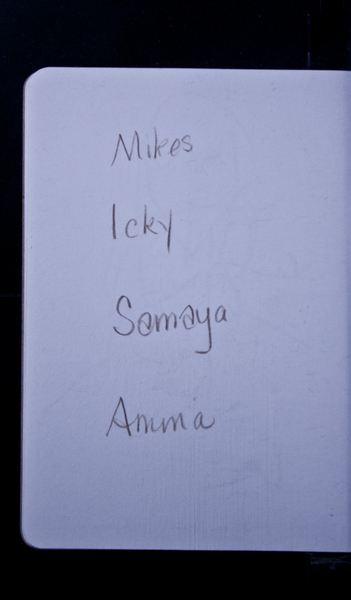 Mikes
Icky
Samaya
Amma